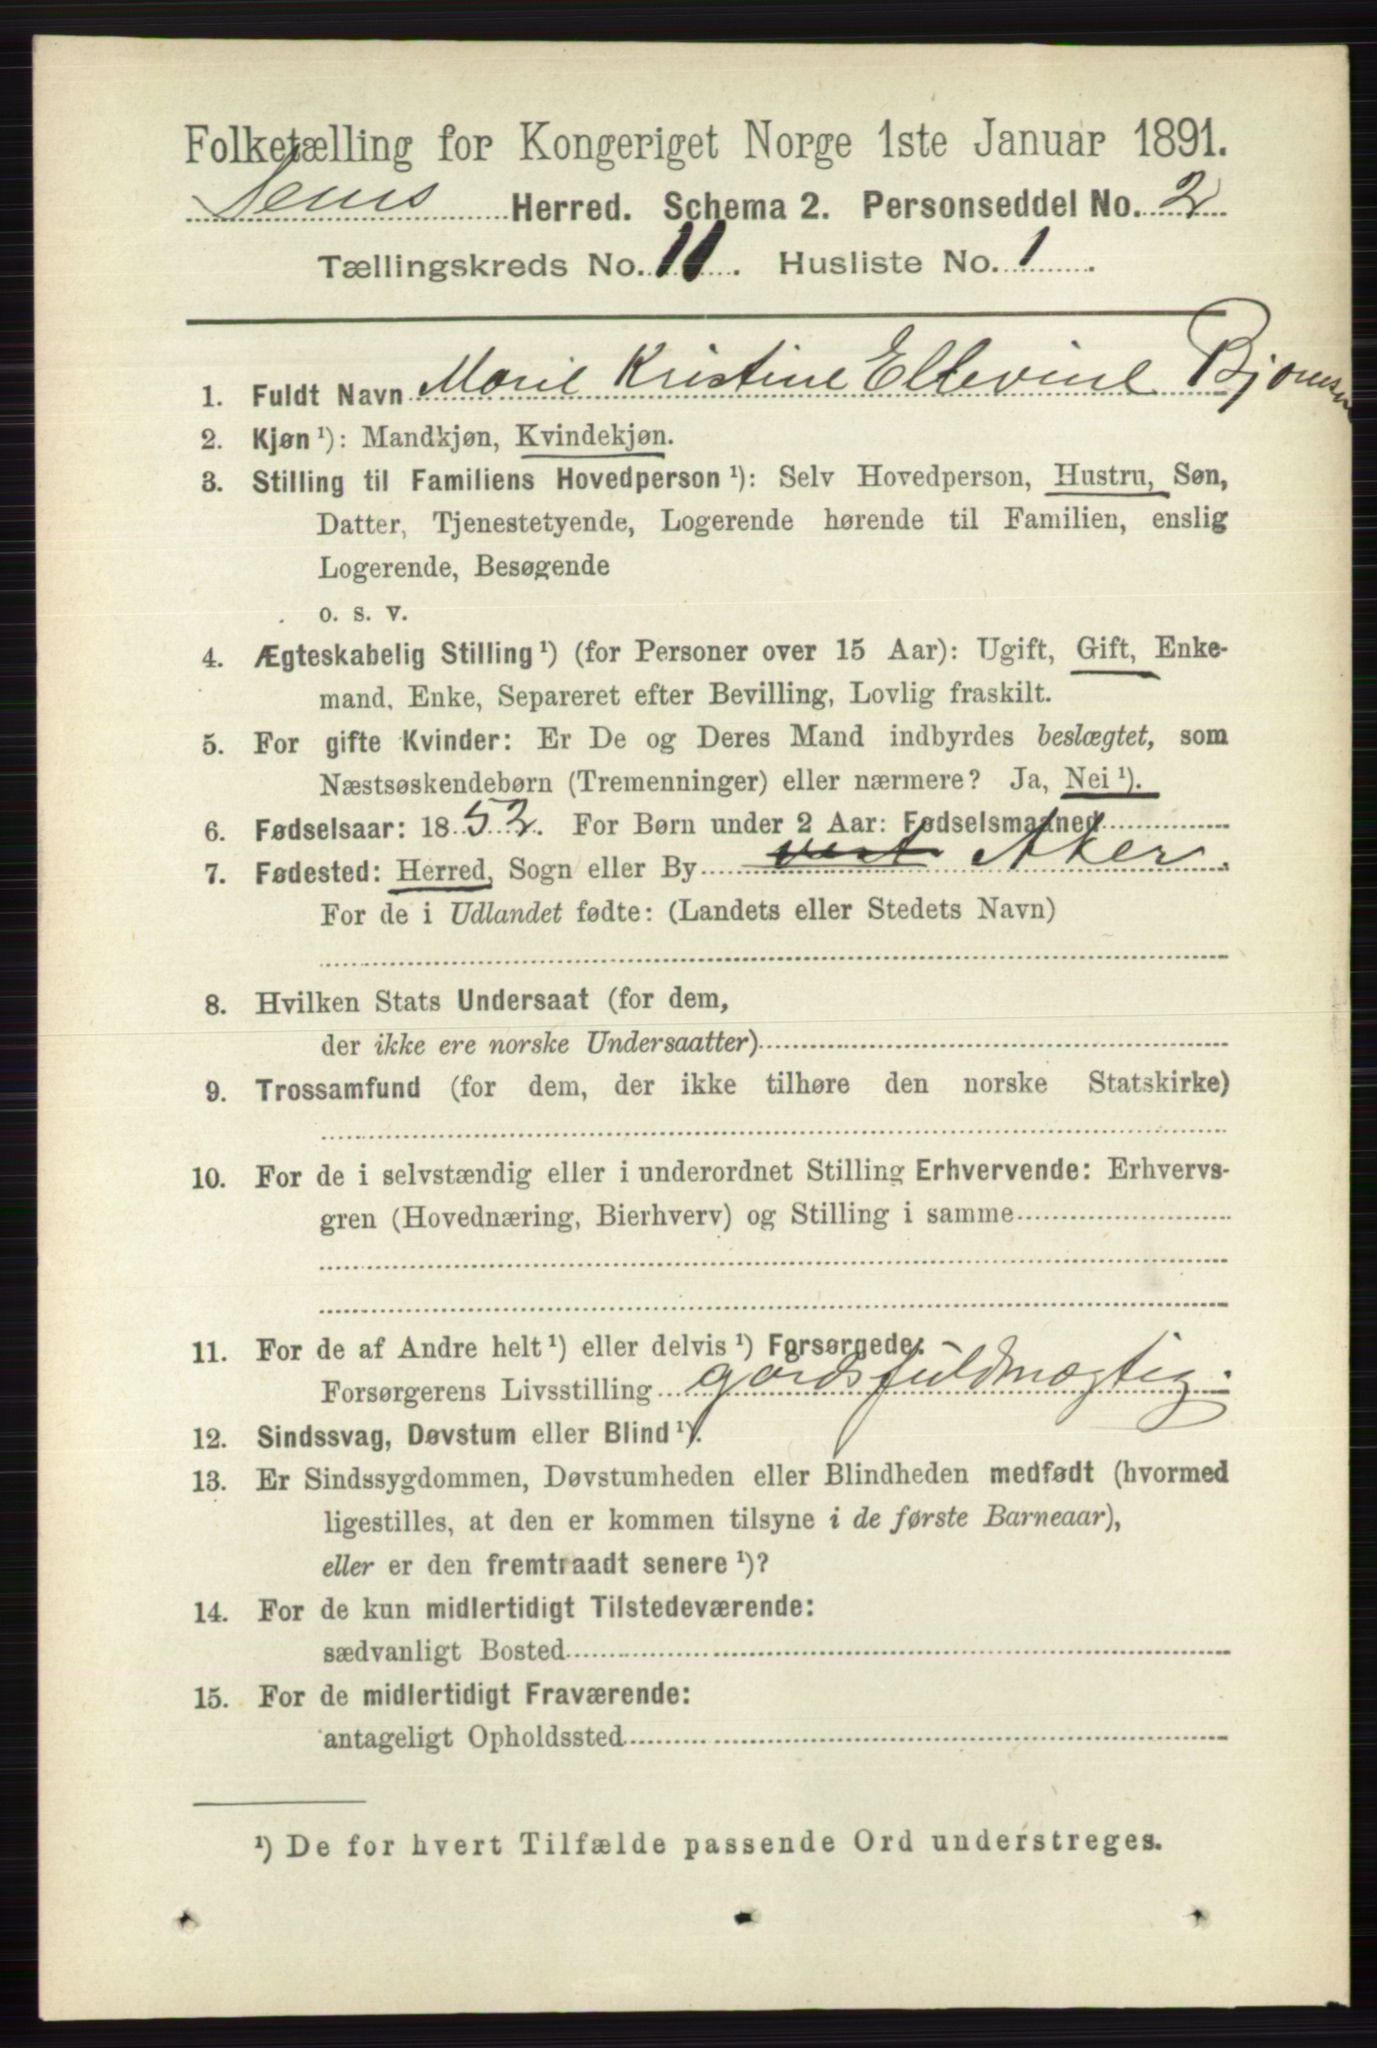 Folketælling for Kongeriget Norge 1ste Januar 1891.
Sems Herred. Schema 2. Personseddel No. 2
Tællingskreds No. 11. Husliste No. 1.
1. Fuldt Navn Marie Kristine Ellevine Bjørnsen
2. Kjøn ¹): Mandkjøn, Kvindekjøn.
3. Stilling til Familiens Hovedperson ¹): Selv Hovedperson, Hustru, Søn,
Datter, Tjenestetyende, Logerende hørende til Familien, enslig
Logerende, Besøgende
o. s. v.
4. Ægteskabelig Stilling ¹) (for Personer over 15 Aar): Ugift, Gift, Enke-
mand, Enke, Separeret efter Bevilling, Lovlig fraskilt.
5. For gifte Kvinder: Er De og Deres Mand indbyrdes beslægtet, som
Næstsøskendebørn (Tremenninger) eller nærmere? Ja, Nei ¹).
6. Fødselsaar: 1852. For Børn under 2 Aar: Fødselsmaaned
7. Fødested: Herred, Sogn eller By vest Aker.
For de i Udlandet fødte: (Landets eller Stedets Navn)
8. Hvilken Stats Undersaat (for dem,
der ikke ere norske Undersaatter)
9. Trossamfund (for dem, der ikke tilhøre den norske Statskirke)
10. For de i selvstændig eller i underordnet Stilling Erhvervende: Erhvervs-
gren (Hovednæring, Bierhverv) og Stilling i samme
11. For de af Andre helt ¹) eller delvis ¹) Forsørgede:
Forsørgerens Livsstilling godsfuldmægtig.
12. Sindssvag, Døvstum eller Blind ¹).
13. Er Sindssygdommen, Døvstumheden eller Blindheden medfødt (hvormed
ligestilles, at den er kommen tilsyne i de første Barneaar),
eller er den fremtraadt senere ¹)?
14. For de kun midlertidigt Tilstedeværende:
sædvanligt Bosted
15. For de midlertidigt Fraværende:
antageligt Opholdssted
¹) De for hvert Tilfælde passende Ord understreges.